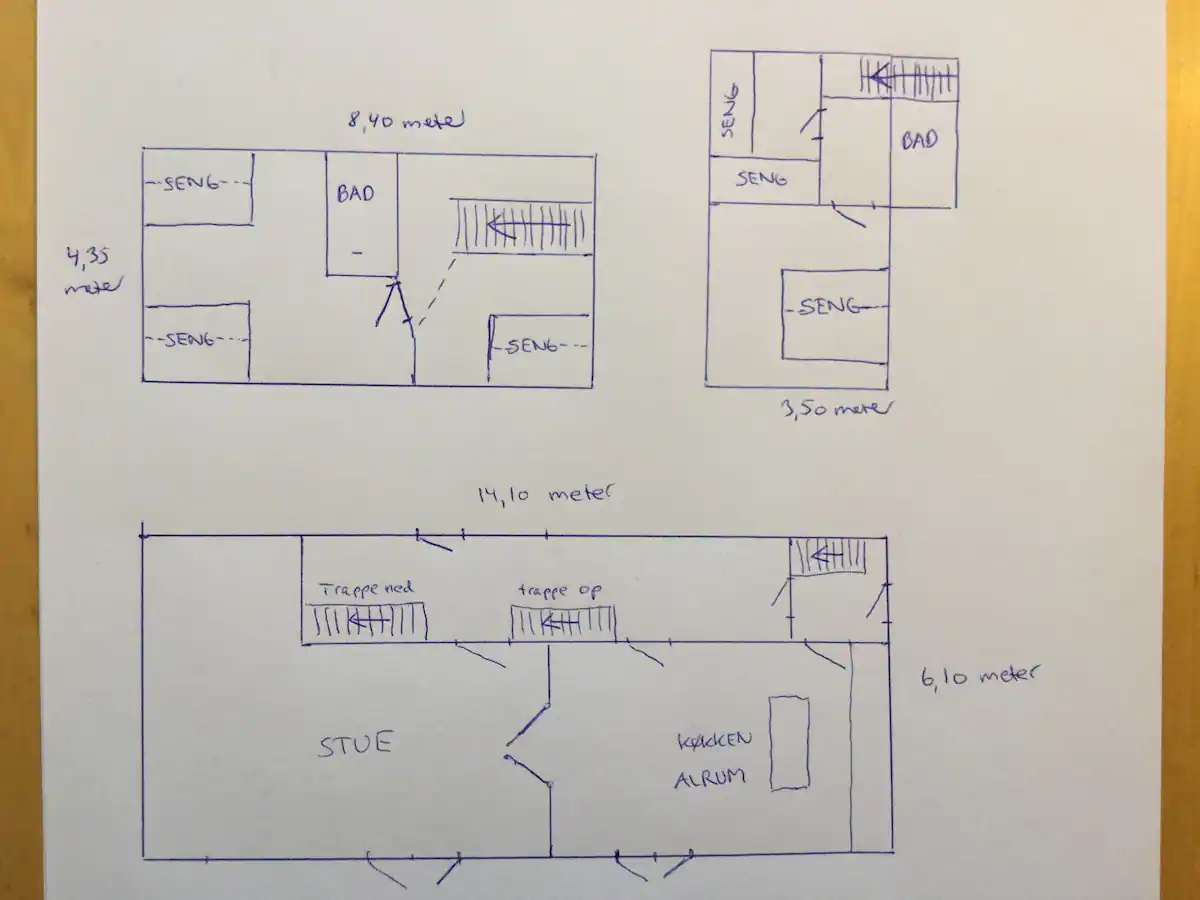 8,40 meter
SENG
BAD
4,35
meter
SENG
SENG
SENG
SENG
BAD
SENG
3,50 meter
14,10 meter
Trappe ned
trappe op
6,10 meter
STUE
KØKKEN
ALRUM